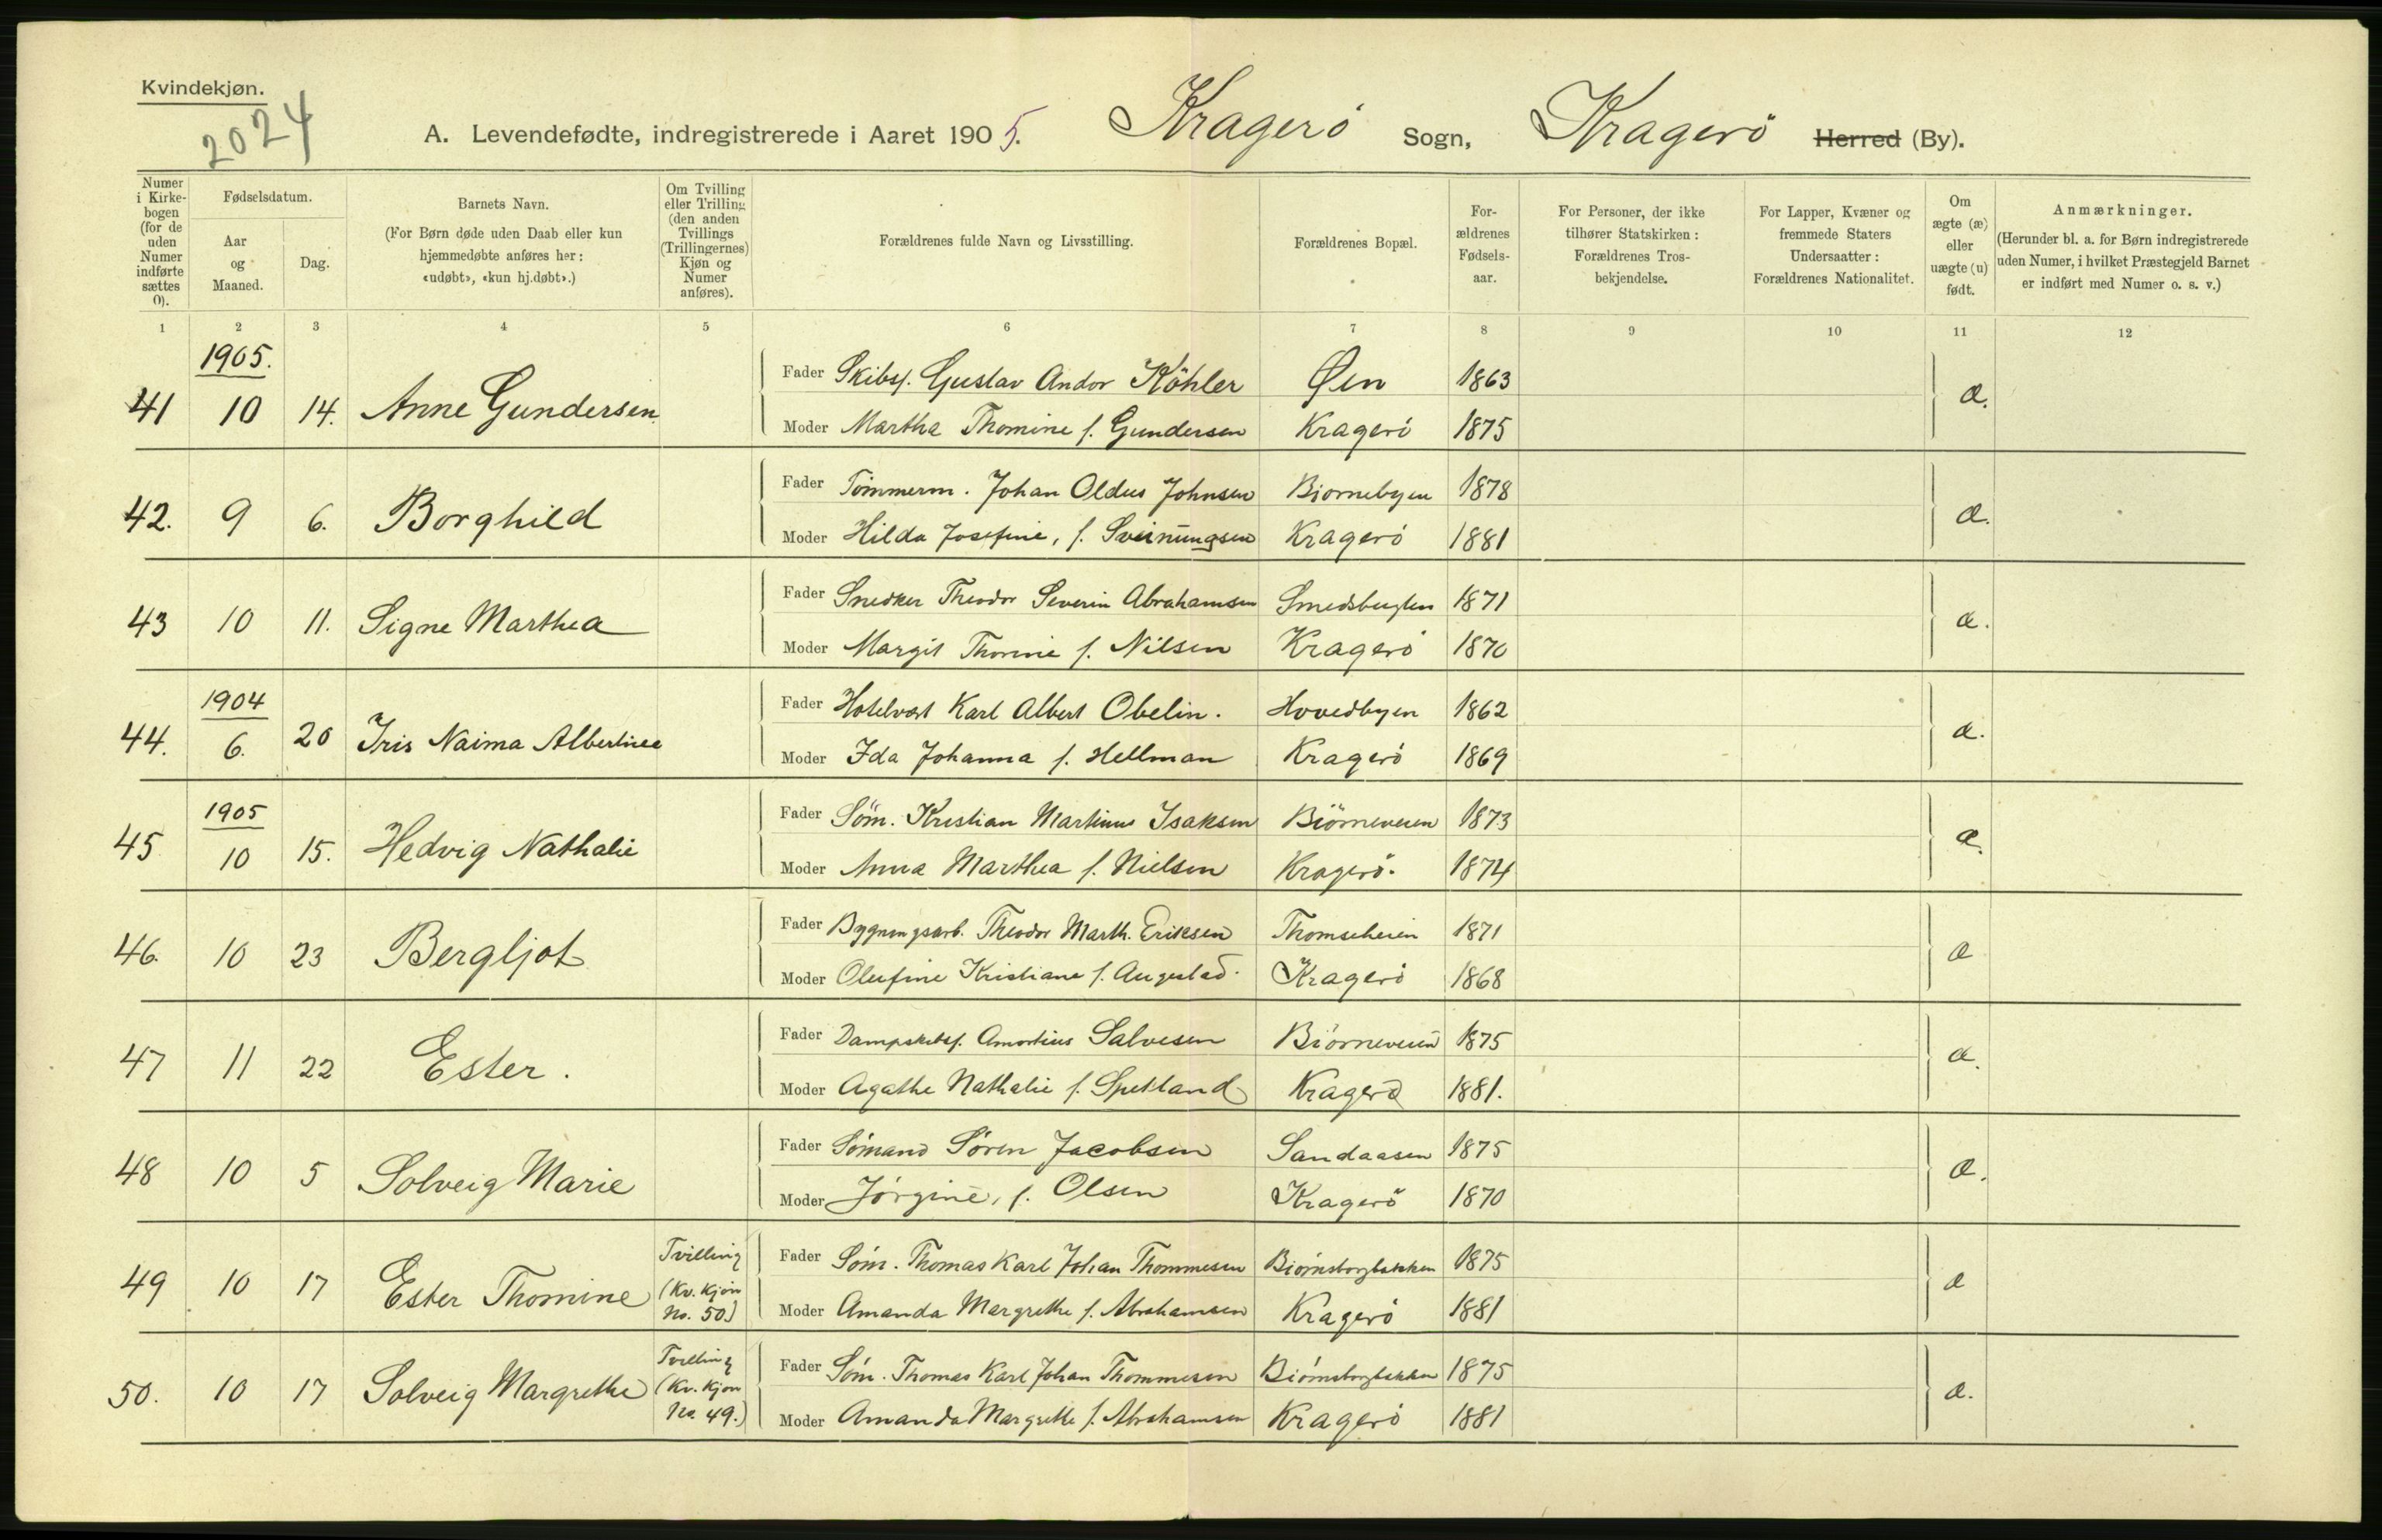 Kvindekjøn.
2024
A. Levendefødte, indregistrerede i Aaret 1905. Kragerö Sogn, Kragerö Herred (By).
Numer i Kirke-bogen (for de uden Numer indførte sættes 0).
Fødselsdatum.
Aar og Maaned.
Dag.
Barnets Navn.
(For Børn døde uden Daab eller kun hjemmedøbte anføres her: «udøbt», «kun hj.døbt».)
Om Tvilling eller Trilling (den anden Tvillings (Trillingernes) Kjøn og Numer anføres).
Forældrenes fulde Navn og Livsstilling.
Forældrenes Bopæl.
For-ældrenes Fødsels-aar.
For Personer, der ikke tilhører Statskirken: Forældrenes Tros-bekjendelse.
For Lapper, Kvæner og fremmede Staters Undersaatter: Forældrenes Nationalitet.
Om ægte (æ) eller uægte (u) født.
Anmærkninger.
(Herunder bl. a. for Børn indregistrerede uden Numer, i hvilket Præstegjeld Barnet er indført med Numer o. s. v.)
1 2 3 4 5 6 7 8 9 10 11 12
1905.
41 10 14. Anne Gundersen Fader Skibsf. Gustav Andor Köhler Øen 1863 æ.
Moder Martha Thomine f. Gundersen Kragerö 1875
42. 9 6. Borghild Fader Tömmerm. Johan Oldus Johnsen Biornebyen 1878 æ.
Moder Hilda Josefine, f. Sveinungsen Kragerö 1881
43 10 11. Signe Marthea Fader Snedker Theodor Severin Abrahamsen 1871 æ.
Moder Margit Thomine f. Nilsen Kragerö 1870
1904
44. 6. 20 Iris Naima Albertine Fader Hotelvært Karl Albert Obelin. Hovedbyen 1862 æ.
Moder Ida Johanna f. Hellman Kragerö 1869
1905
45 10 15. Hedvig Nathalie Fader Söm. Kristian Martinus Isaksen Biörneveien 1873 æ.
Moder Anna Marthea f. Nielsen Kragerö. 1874
46. 10 23 Bergljot Fader Bygningsarb. Theodor Marth. Eriksen Thomseheien 1871 æ
Moder Olufine Kristiane f. Augestad. Kragerö 1868
47 11 22 Ester. Fader Dampskibsf. Salvesen Biörneveien 1875 æ.
Moder Agathe Nathalie f. Spetland Kragerö 1881.
48 10 5 Solveig Marie Fader Sömand Sören Jacobsen Sandaasen 1875 æ.
Moder Jörgine, f. Olsen Kragerö 1870
49 10 17 Ester Thomine Tvilling (Kv. Kjön No. 50) Fader Söm. Thomas Karl Johan Thommesen Biörnsborgbakken 1875 æ
Moder Amanda Margrethe f. Abrahamsen Kragerö 1881
50. 10 17 Solveig Margrethe Tvilling (Kv. Kjön No. 49.) Fader Söm. Thomas Karl Johan Thommesen Biörnsborgbakken 1875 æ.
Moder Amanda Margrethe f. Abrahamsen Kragerö 1881